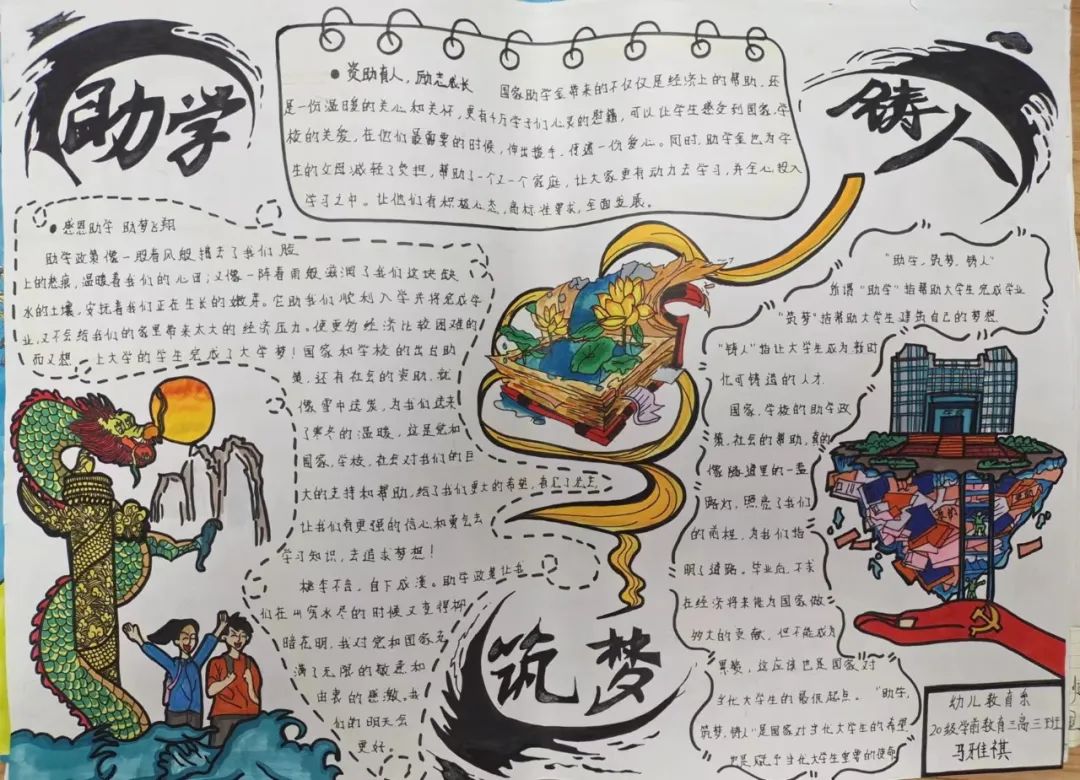 助学
资助育人，励志成长 国家助学金带来的不仅仅是经济上的帮助，还
是一份温暖的关心和关怀，更有千万学子们心灵的慰藉，可以让学生感受到国家、学
校的关爱，在他们最需要的时候，伸出援手，传递一份爱心。同时，助学金也为学
生的父母减轻了负担，帮助了一个又一个家庭，让大家更有动力去学习，并全心投入
学习之中。让他们有积极心态，高标准要求，全面发展。
铸人
感恩助学 助梦飞翔
助学政策像一股春风般拂去了我们脸
上的愁痕，温暖着我们的心田；又像一阵春雨般滋润了我们这块缺
水的土壤，安抚着我们正在生长的嫩芽。它助我们顺利入学并将完成学
业，又不会给我们的家里带来太大的经济压力。使更多经济比较困难的
而又想 上大学的学生完成了大学梦！国家和学校的出台助
策，还有社会的资助，就
像雪中送炭，为我们送来
了寒冬的温暖，这是党和
国家、学校、社会对我们的巨
大的支持和帮助，给了我们更大的希望，
让我们有更强的信心和勇气去
学习知识，去追求梦想！
桃李不言，自下成溪。助学政策让我
们在山穷水尽的时候又变得柳
暗花明，我对党和国家充
满了无限的敬意和
由衷的感激。我
们的明天会
更好。
"助学，筑梦，铸人"
所谓"助学"指帮助大学生完成学业
"筑梦"指帮助大学生建筑自己的梦想
"铸人"指让大学生成为新时
代可铸造的人才.
国家、学校的助学政
策，社会的帮助，真的
像隧道里的一盏
路灯，照亮了我们
的前程，为我们指
明了道路。毕业后，不求
在经济将来能为国家做
多大的贡献，但不能成为
累赘，这应该也是国家对
当代大学生的最低起点。"助学，
筑梦，铸人"是国家对当代大学生的希望
也是赋予当代大学生重要的使命
筑梦
幼儿教育系
20级学前教育三高三班
马雅祺